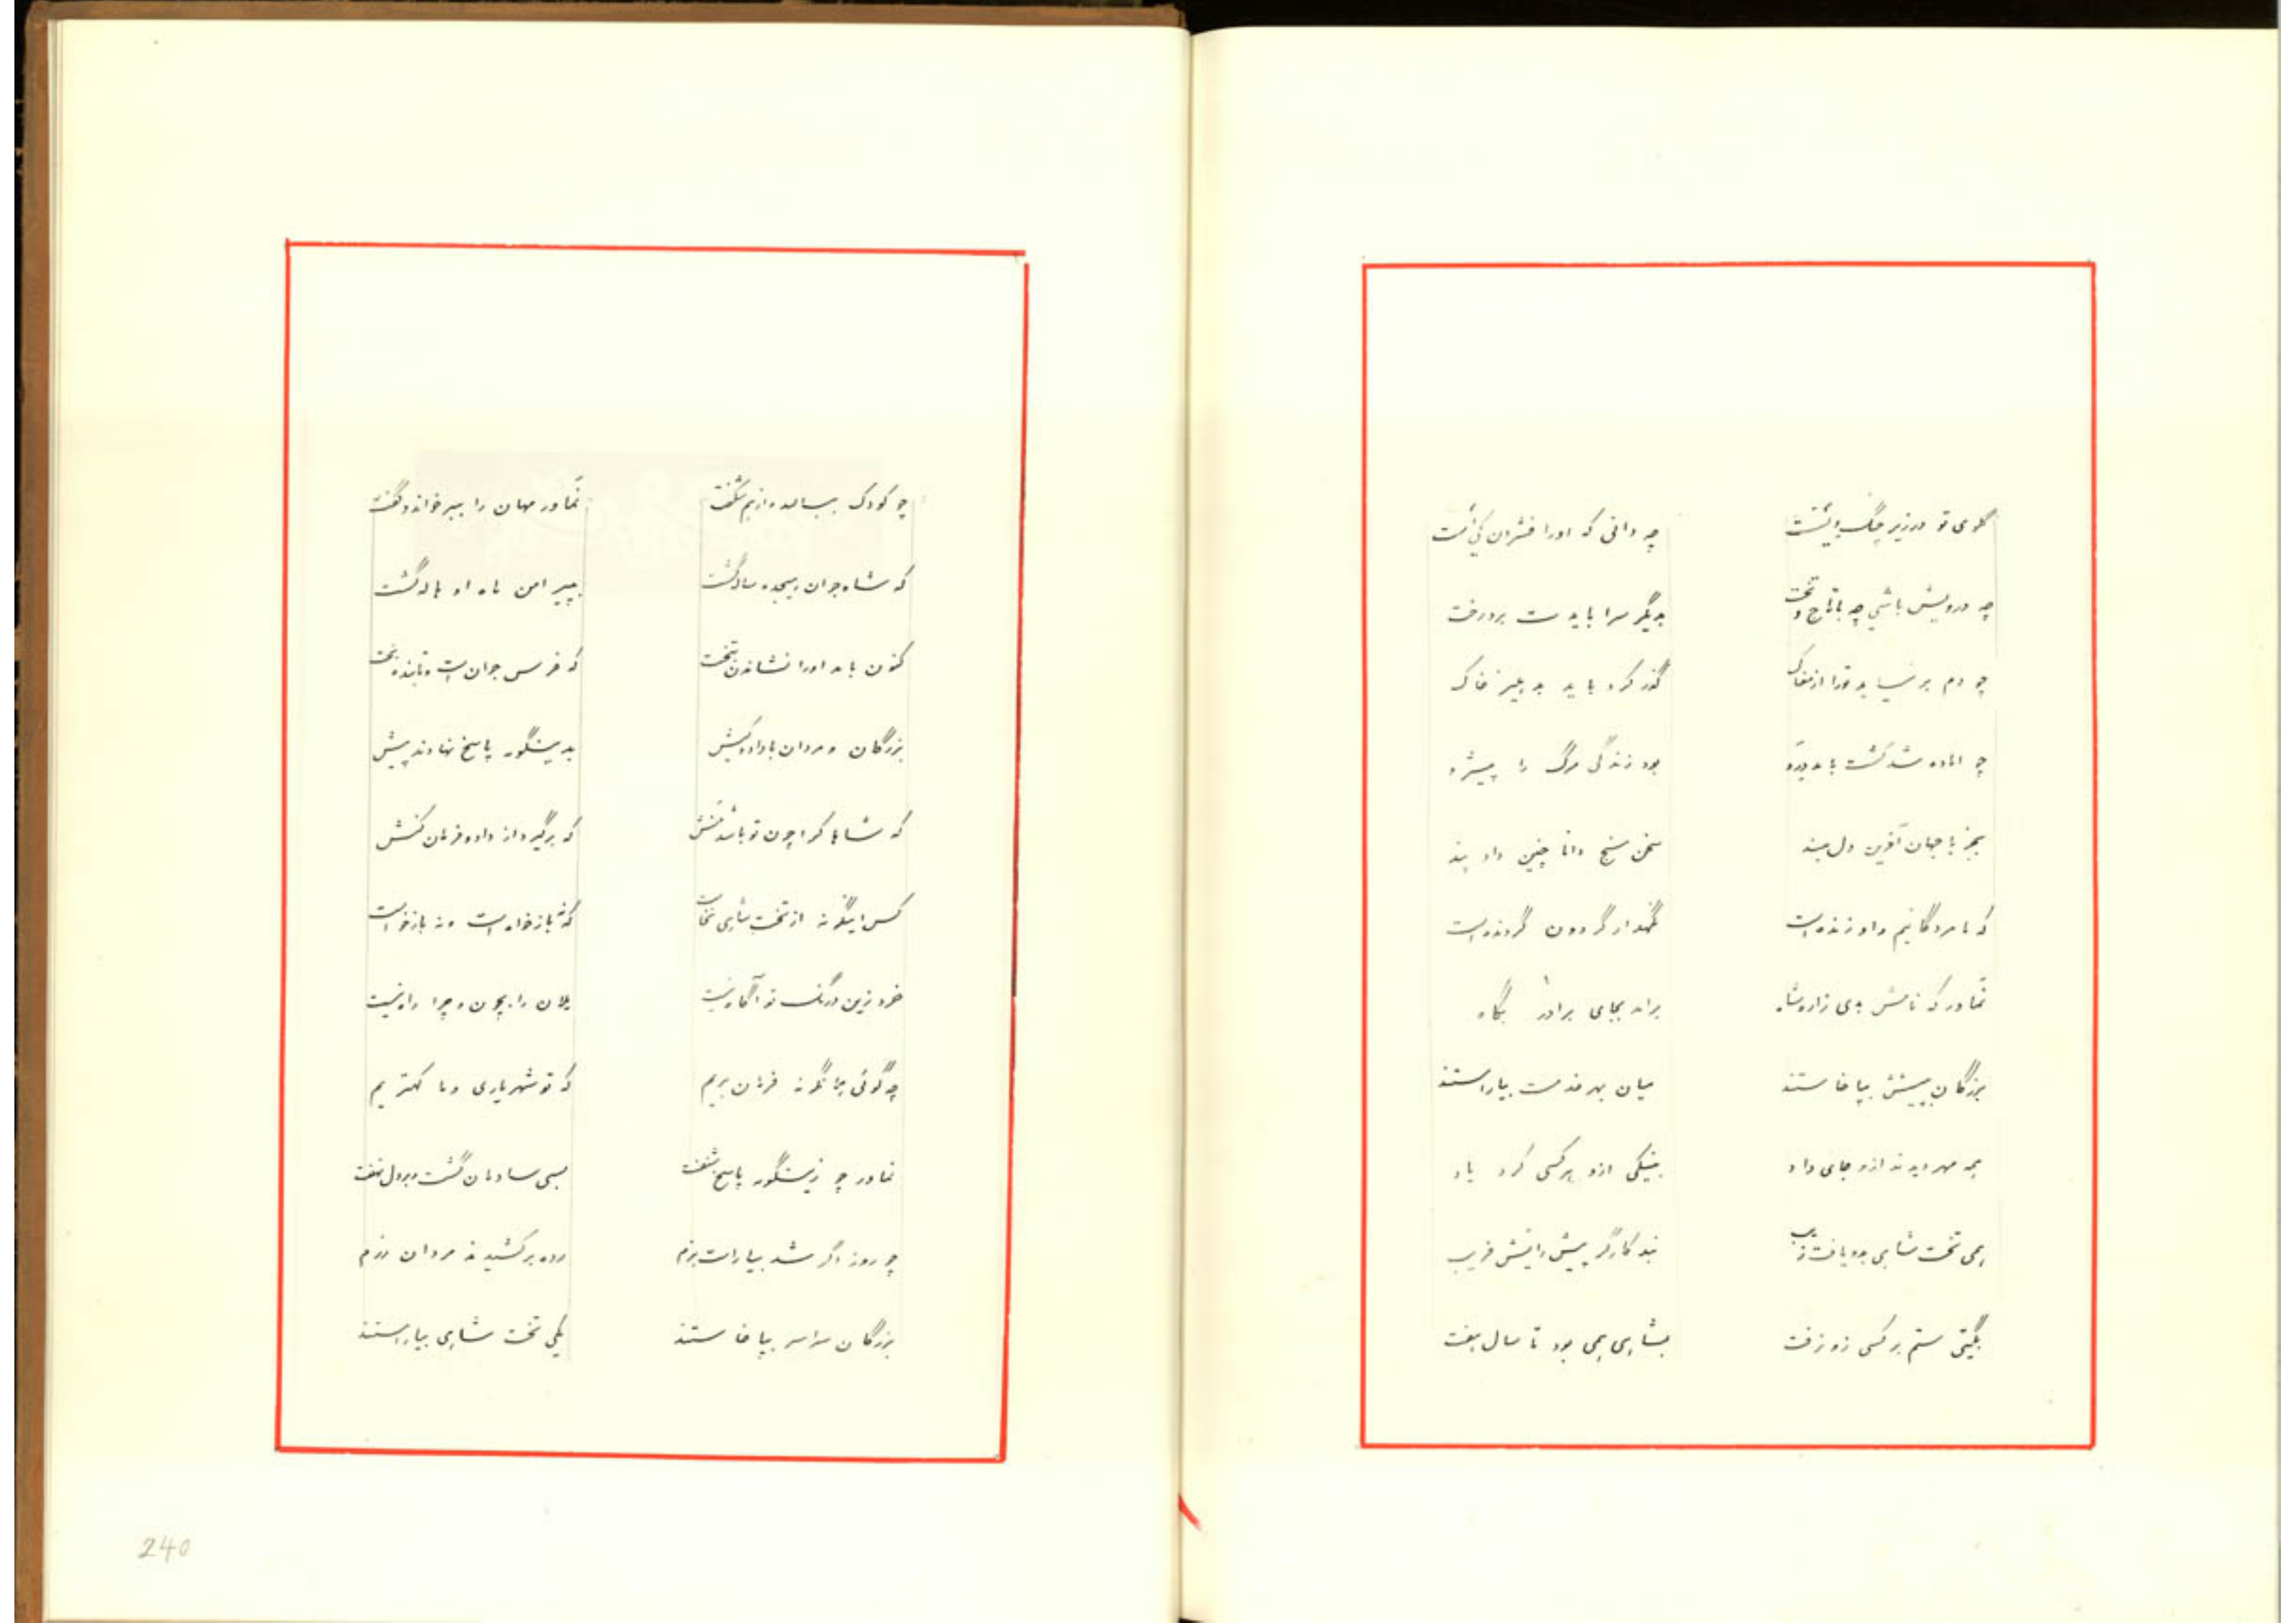 گلوی تو در زیر چنگ وی است چه دانی که او را فشردن کی است
چه درویش باشی چه با تاج و تخت بدیگر سرا بایدت برد رخت
چو دم بر نیاید ترا از مغاک گذر کرد باید به خاک
چو آماده شد کشت باید درو بود زندگی مرگ را پیشرو
بجز با جهان آفرین دل مبند سخن سنج دانا چنین داد پند
که ما مردگانیم و او زنده است نگهدار گردون گردنده است
نماور که نامش بدی زاده شاه برآمد بجای برادر بگاه
بزرگان به پیشش بپا خاستند میان بهر خدمت بیاراستند
همه مهر دیدند ازو جای داد به نیکی ازو هر کسی کرد یاد
همی تخت شاهی بدو یافت زیب نبد کارگر پیش رایش فریب
بگیتی ستم بر کسی زو نرفت بشاهی همی بود تا سال هفت
چو کودک شگفت نماور مهان را ببر خواند و گفت
که شاه جوان هیجده ساله گشت به پیرامن ماه او هاله گشت
کنون باید او را نشاندن بتخت که فرسش جوان است و تابنده بخت
بزرگان و مردان با داد و کیش بدینگونه پاسخ نهادند پیش
که شاها کرا چون تو باشد منش که برگیرد از داد و فرمان کنش
کس اینگونه از تخت شاهی نخاست که نه باز خواه است و نه باز خواست
خرد زین درنگ تو آگاه نیست یلان را بچون و چرا راه نیست
چه گوئی همانگونه فرمان بریم که تو شهریاری و ما کهتریم
نماور چو زینگونه پاسخ شنفت بسی شادمان گشت و بر دل نهفت
چو روز دگر شد بیاراست بزم رده برکشیدند مردان رزم
بزرگان سراسر بپا خاستند یکی تخت شاهی بیاراستند
240